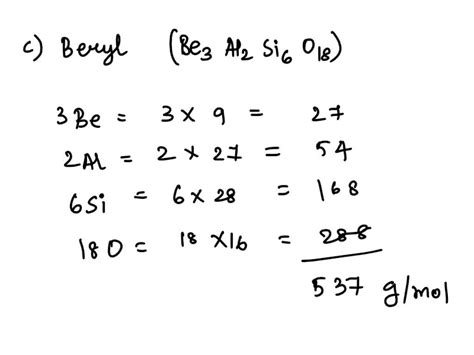 c) Beryl (Be₃ Al₂ Si₆ O₁₈)
3Be = 3 × 9 = 27
2Al = 2 × 27 = 54
6Si = 6 × 28 = 168
18 O = 18 × 16 = 288
537 g/mol